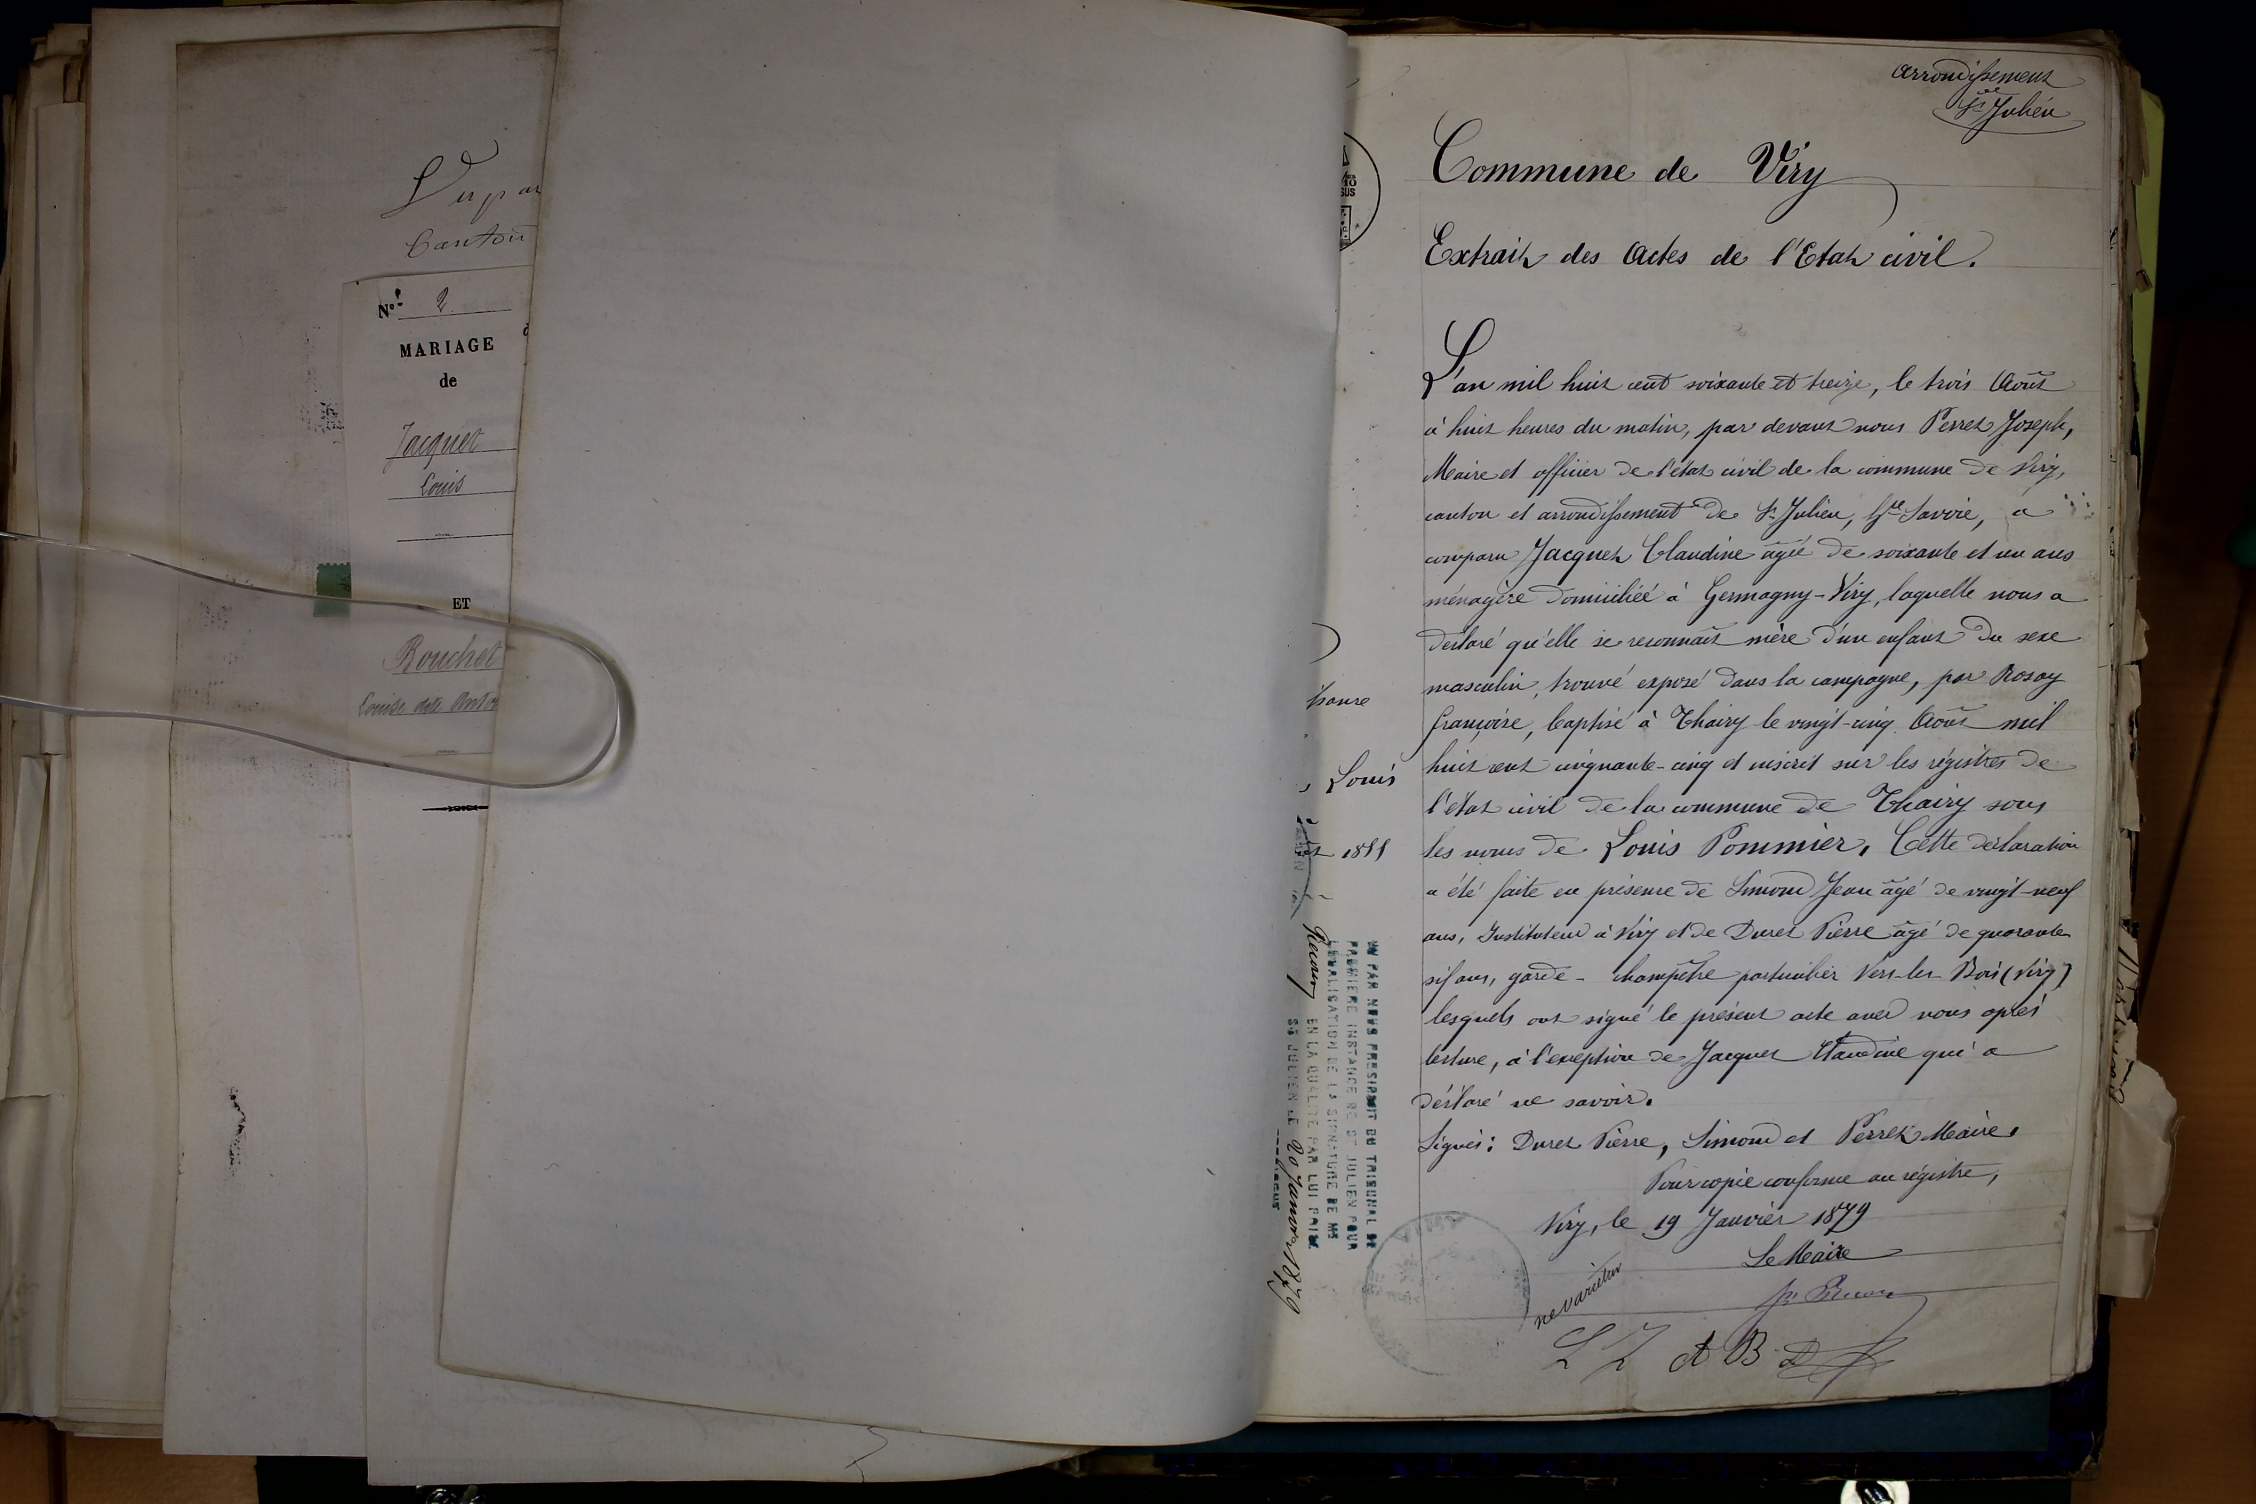 Canton
N° 2
MARIAGE
de
Jacquet
Louis
ET
Bouchet
Louise dite
Arrondissement
de St Julien
Commune de Viry
Extrait des Actes de l'Etat civil.
L'an mil huit cent soixante et treize, le trois Août
à huit heures du matin, par devant nous Perret Joseph,
Maire et officier de l'état civil de la commune de Viry,
canton et arrondissement de St Julien, Hte Savoie, a
comparu Jacquet Claudine agée de soixante et un ans
ménagère domiciliée à Germagny-Viry, laquelle nous a
déclaré qu'elle se reconnait mère d'un enfant du sexe
masculin, trouvé exposé dans la campagne, par Rosay
françoise, baptisé à Thairy le vingt-cinq Août mil
huit cent cinquante-cinq et inscrit sur les régistres de
l'état civil de la commune de Thairy sous
les noms de Louis Pommier. Cette déclaration
a été faite en présence de Simond Jean âgé de vingt-neuf
ans, Instituteur à Viry et de Duret Pierre âgé de quarante
six ans, garde-champêtre particulier Vers-les-Bois (Viry)
lesquels ont signé le présent acte avec nous après
lecture, à l'exception de Jacquet Claudine qui a
déclaré ne savoir.
Signés: Duret Pierre, Simond et Perret Maire.
Pour copie conforme au régistre,
Viry, le 19 Janvier 1879
Le Maire
ne varietur
L J A B D
Louis
1855
VU PAR NOUS PRESIDENT DU TRIBUNAL DE
PREMIERE INSTANCE DE ST JULIEN POUR
LEGALISATION DE LA SIGNATURE DE MR
EN LA QUALITE PAR LUI PRISE
ST JULIEN LE 20 Janvier 1879